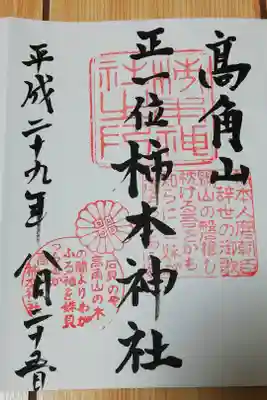 髙角山
正一位柿本神社
平成二十九年八月二十五日
本人麿朝臣
辞世の御歌
鴨山の磐根し
枕ける吾をかも
知らに
石見のや
高角山の木
の間よりわが
ふる袖を妹見
つらむか